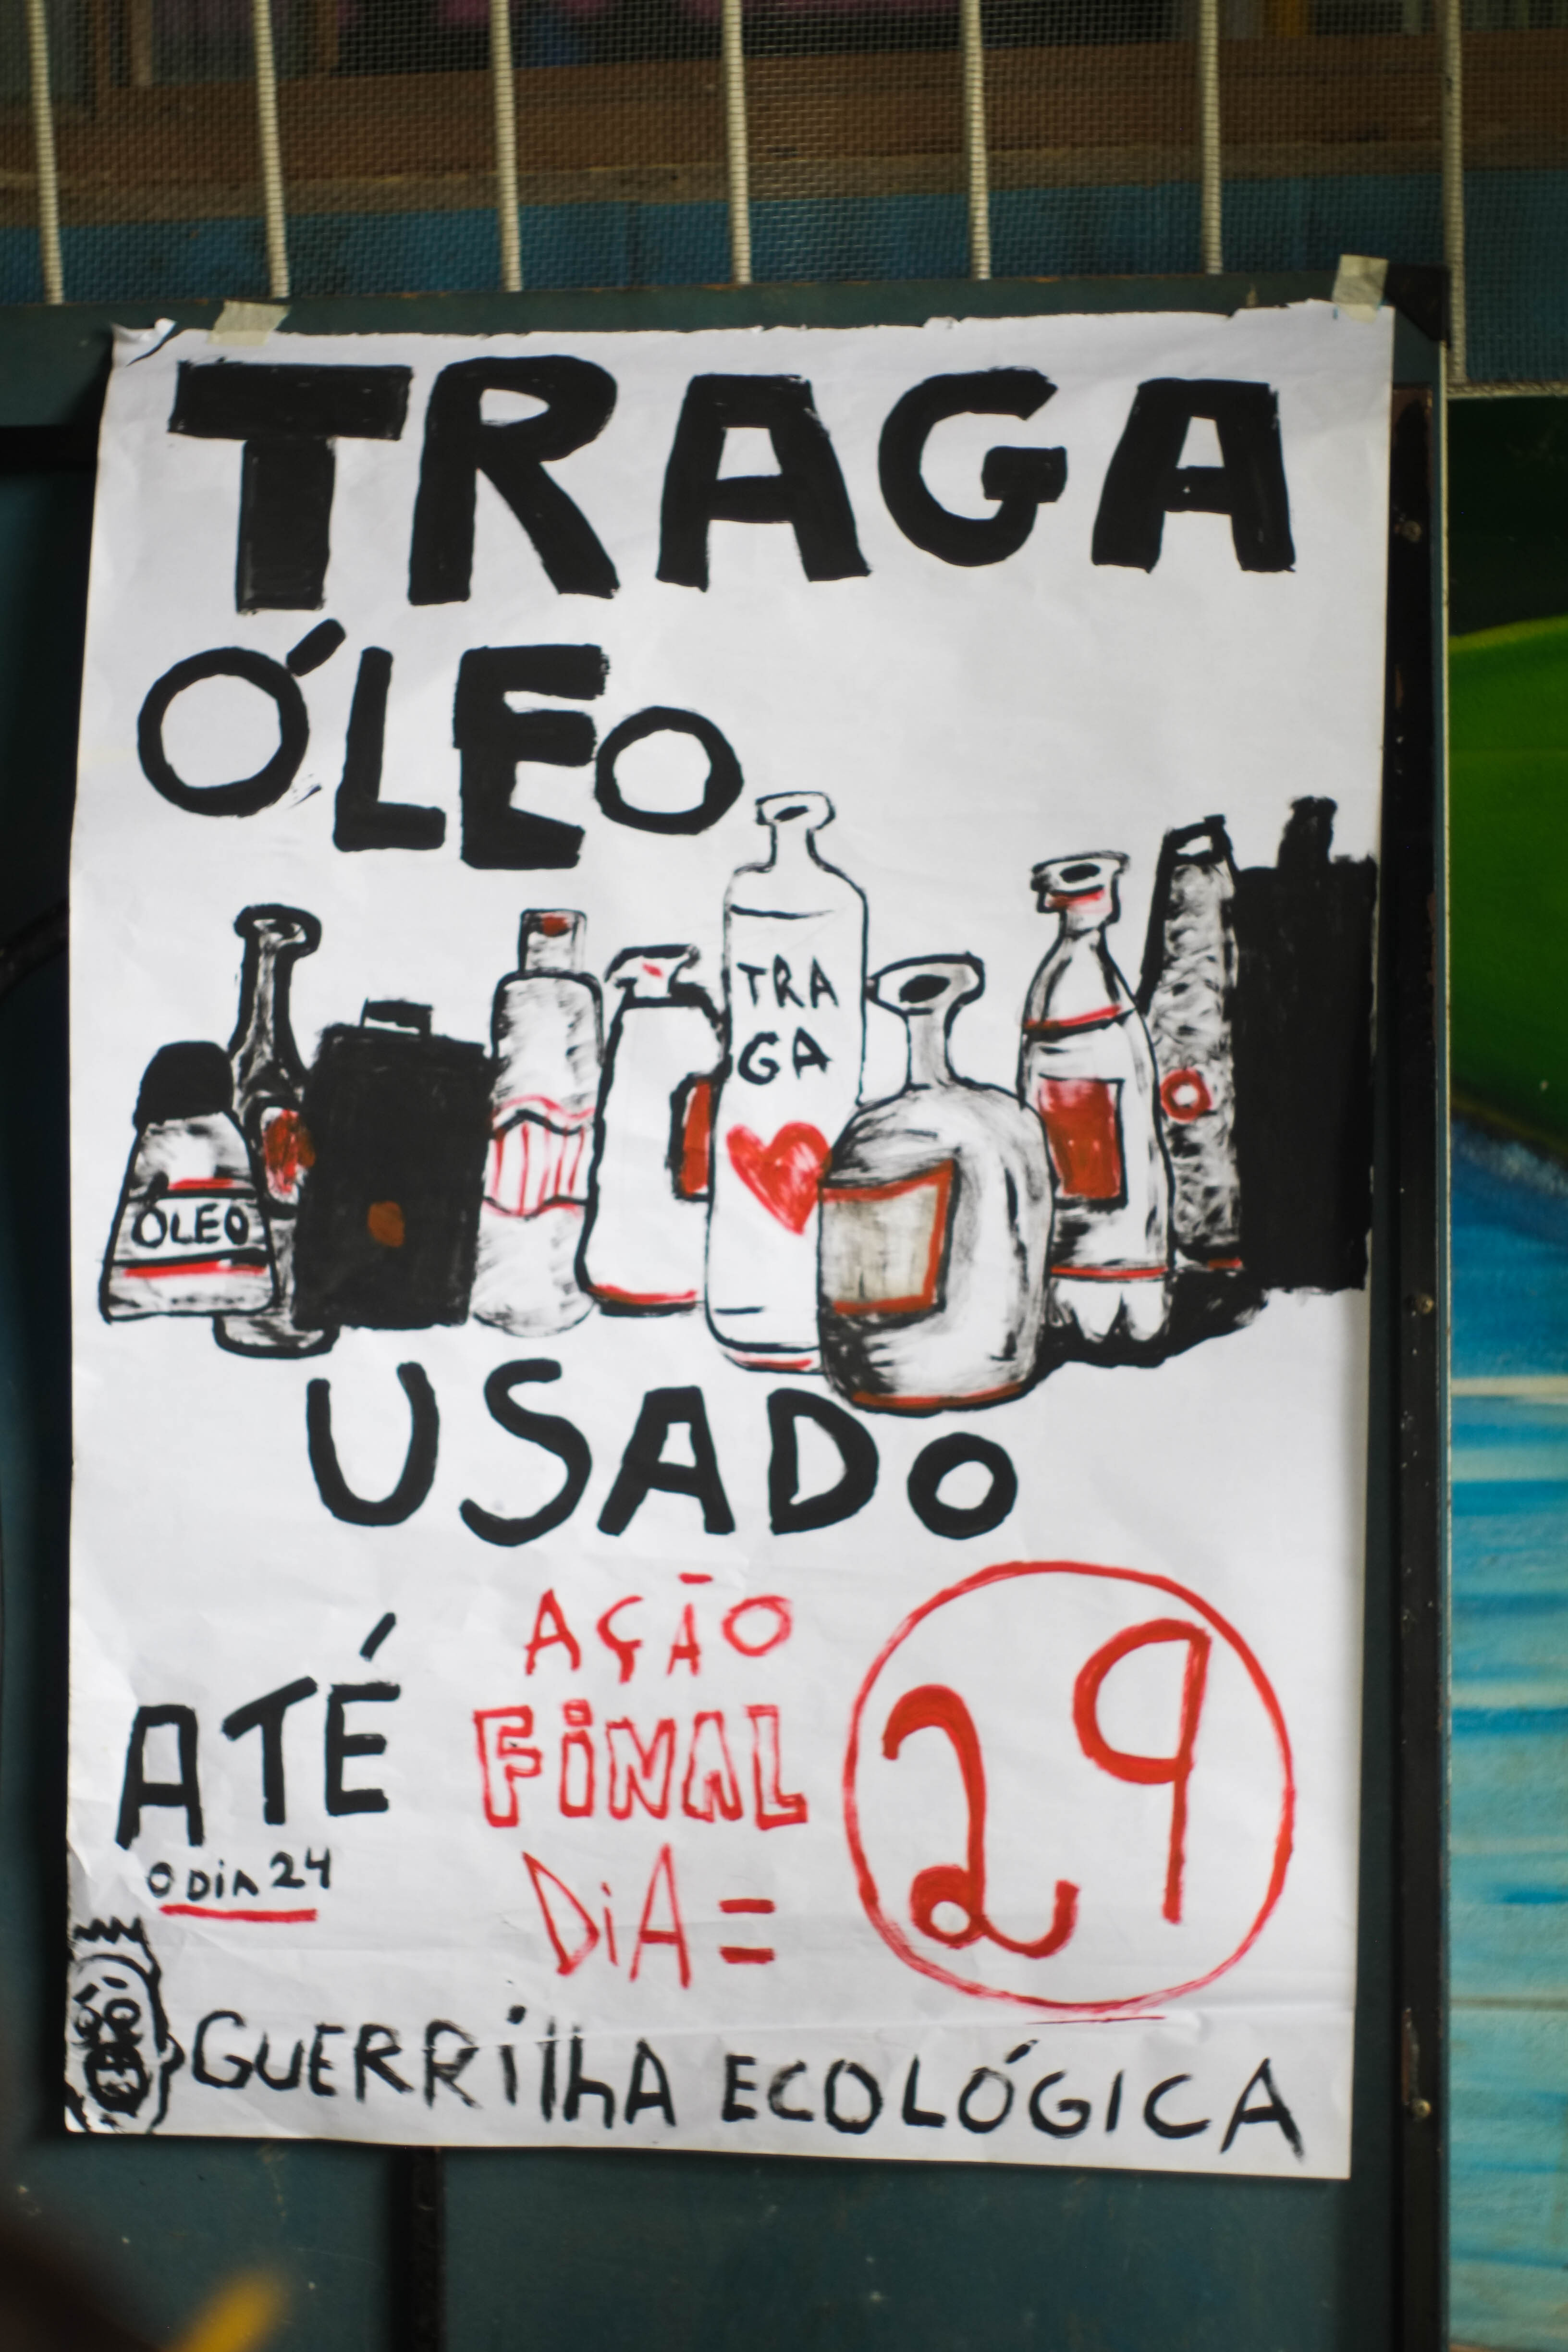 TRAGA
ÓLEO
TRA
GA
ÓLEO
USADO
ATÉ
O DiA 24
AÇÃO
FiNAL
DiA = 29
GUERRilhA ECOLÓGICA